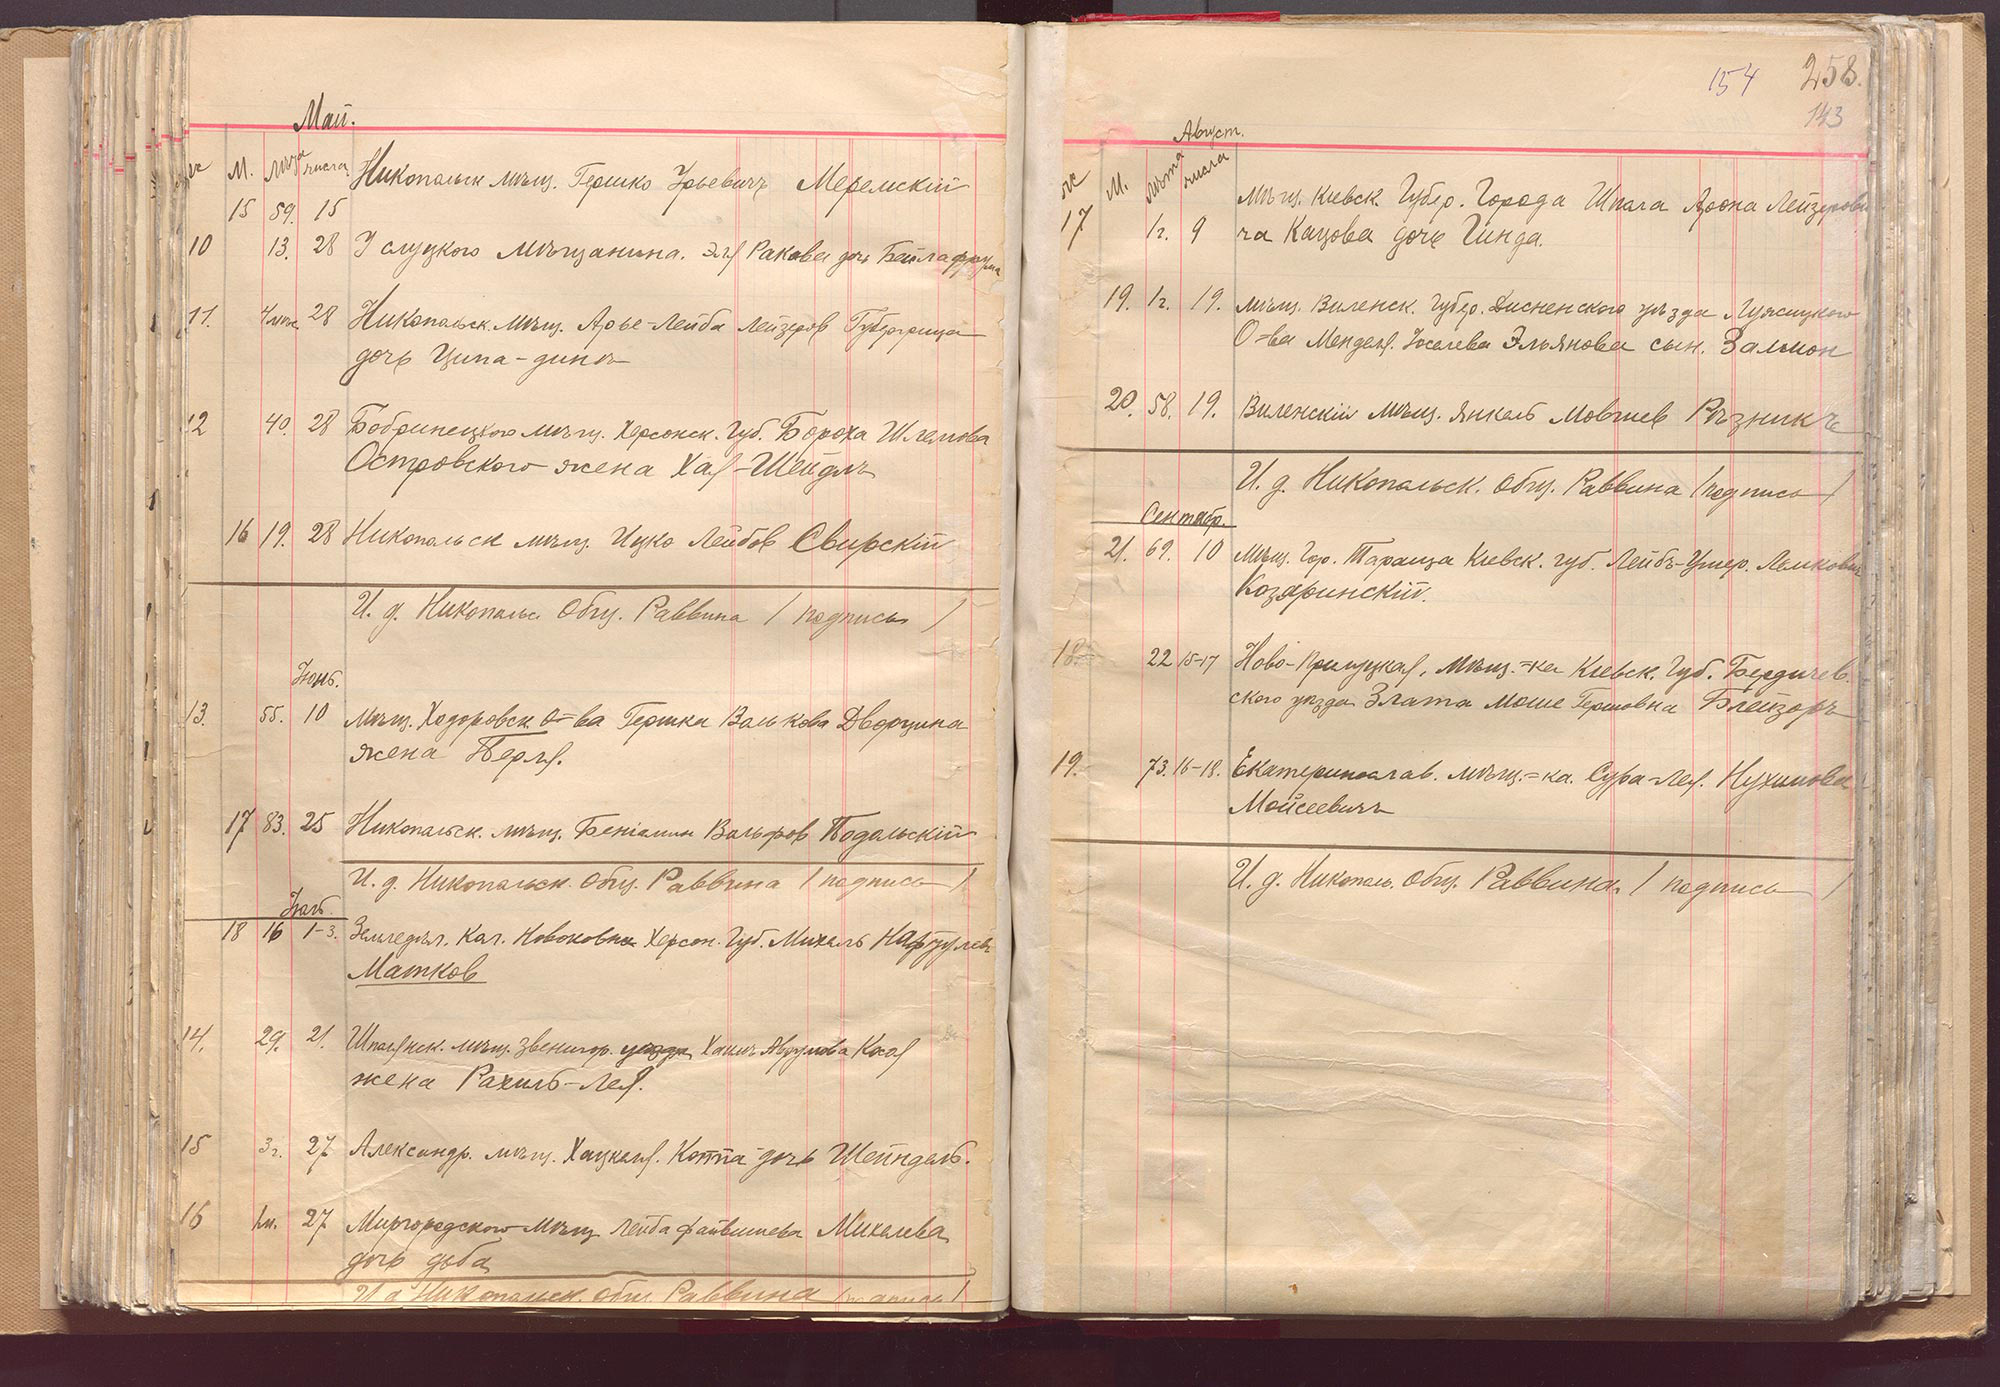 Май.
М. числа Никопольск мѣщ. Гершко Урьевичъ Меремскій
15 59. 15
10 13. 28 Услуцкого мѣщанина. Ракова дочь Бейла
11. 28 Никопольск. мѣщ. Арье-Лейба Лейзеров
дочь Ципа-дина
12 40. 28 Бобринецкого мѣщ. Херсонск. Губ. Бороха Шлемова
Островского жена Хая-Шейдль
16 19. 28 Никопольск мѣщ. Ицко Лейбов Свирскій
И. д. Никопольс Общ. Раввина (подпись)
Іюнь.
13. 55. 10 мѣщ. Ходоровск. О-ва Гершка Валькова Дворцина
жена Перля.
17 83. 25 Никопольск. мѣщ. Беніамин Вольфов Подольскій
И. д. Никопольск. Общ. Раввина (подпись)
Іюль.
18 16 1-3. Земледѣл. Кол. Херсон. Губ. Михаль
Матков
14. 29. 21. мѣщ. Звенигор. уезда Хаимъ Аврумова Косая
жена Рахиль-Лея.
15 3г. 27 Александр. мѣщ. Хацкеля. дочь Шейндель.
16 27 Миргородского мѣщ Лейба Файвишева Михелева
дочь доба
И д Никопольск. Общ. Раввина (подпись)
154 258.
143
Август.
М. лѣта числа
17 1г. 9 мѣщ. Кіевск Губер. Города Арона Лейзерови
ча Кацова дочь Гинда.
19. 1г. 19. мѣщ. Виленск. Губер. Дисненского уѣзда Лужицкого
О-ва Менделя. Эльянова сын. Залмон
20. 58. 19. Виленскій мѣщ. Янкель Мовшев Рѣзникъ
И. д. Никопольск. Общ. Раввина (подпись)
Сентябр.
21. 69. 10 мѣщ. Гор. Тараща Кіевск. губ. Лейбъ-
Козаринскій.
18. 22 15-17 Ново-Прилуцкая. мѣщ.-ка Кіевск. Губ. Бердичев.
ского уѣзда Злата Моше Гершовна Блейзоръ
19. 73. 16-18. Екатеринослав. мѣщ.-ка. Сура-Лея. Нухимова
Мойсеевичъ
И. д. Никополь. Общ. Раввина. (подпись)